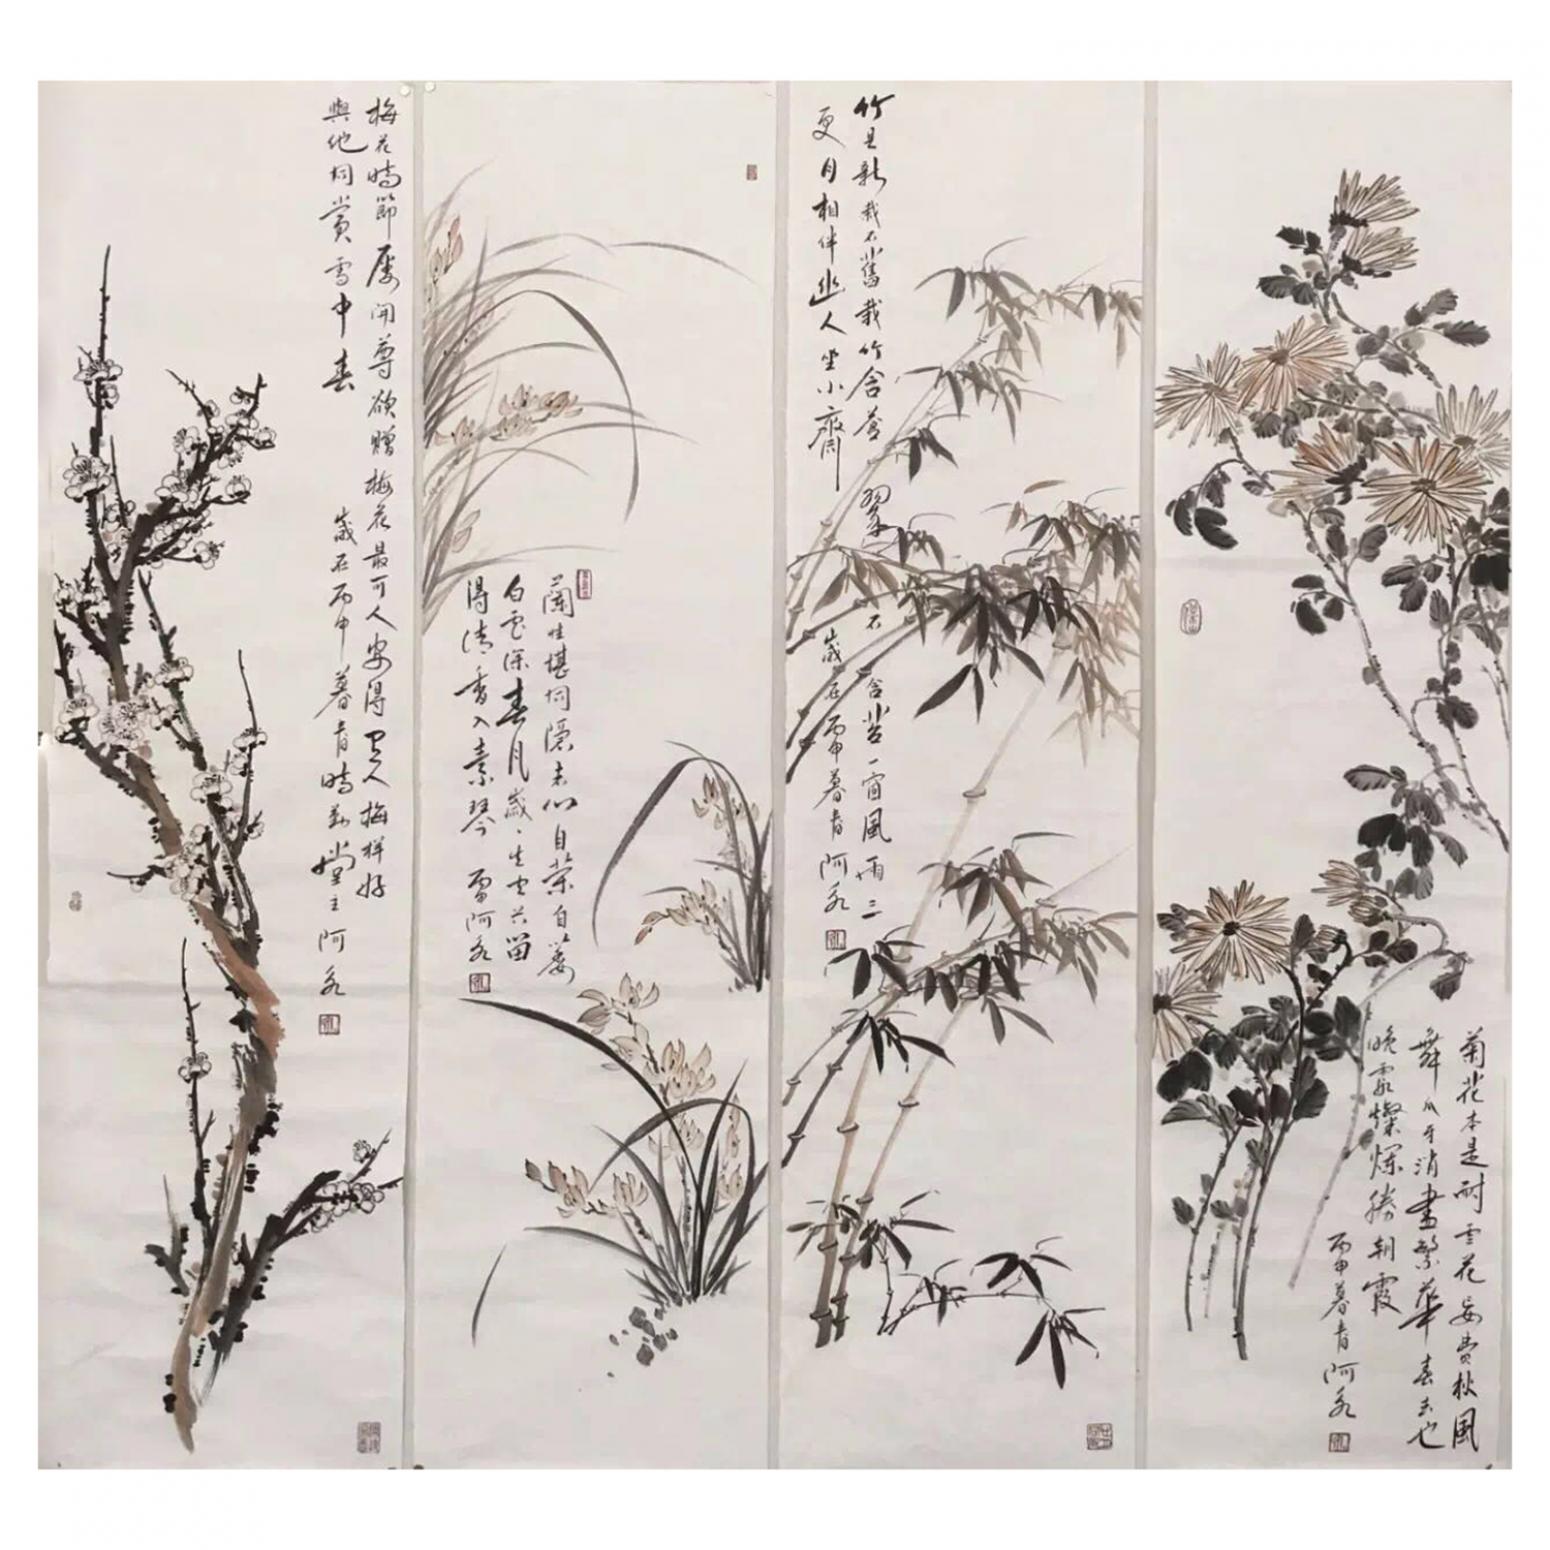 梅花時節屡開尊欲贈梅花最可人安得閒人梅様好
與他同賞雪中春
歲在丙申暮春時於 堂主阿永
蘭生堪同隱未似自荣自萎
白雲深春風歲歲生空谷留
得清香入素琴 雪阿永
竹是新栽石舊栽竹含蒼翠石含苔一窗風雨三
更月相伴幽人坐小齋
歲在丙申暮春阿永
菊花本是耐寒花妄費秋風
舞爪牙消盡繁華春去也
晚霜燦爛勝朝霞
丙申暮春阿永